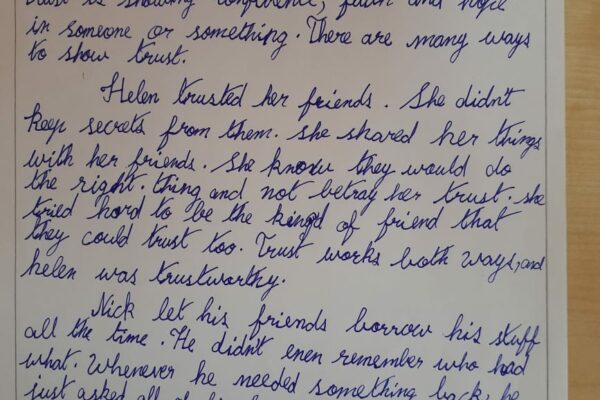 trust is showing confidence, faith and hope
in someone or something. There are many ways
to show trust.
Helen trusted her friends. She didn't
keep secrets from them. she shared her things
with her friends. She know they would do
the right. thing and not betray her trust. she
tried hard to be the kind of friend that
they could trust too. Trust works both ways, and
helen was trustworthy.
Nick let his friends borrow his stuff
all the time. He didn't enen remember who had
what. Whenever he needed something back, he
just asked all of his